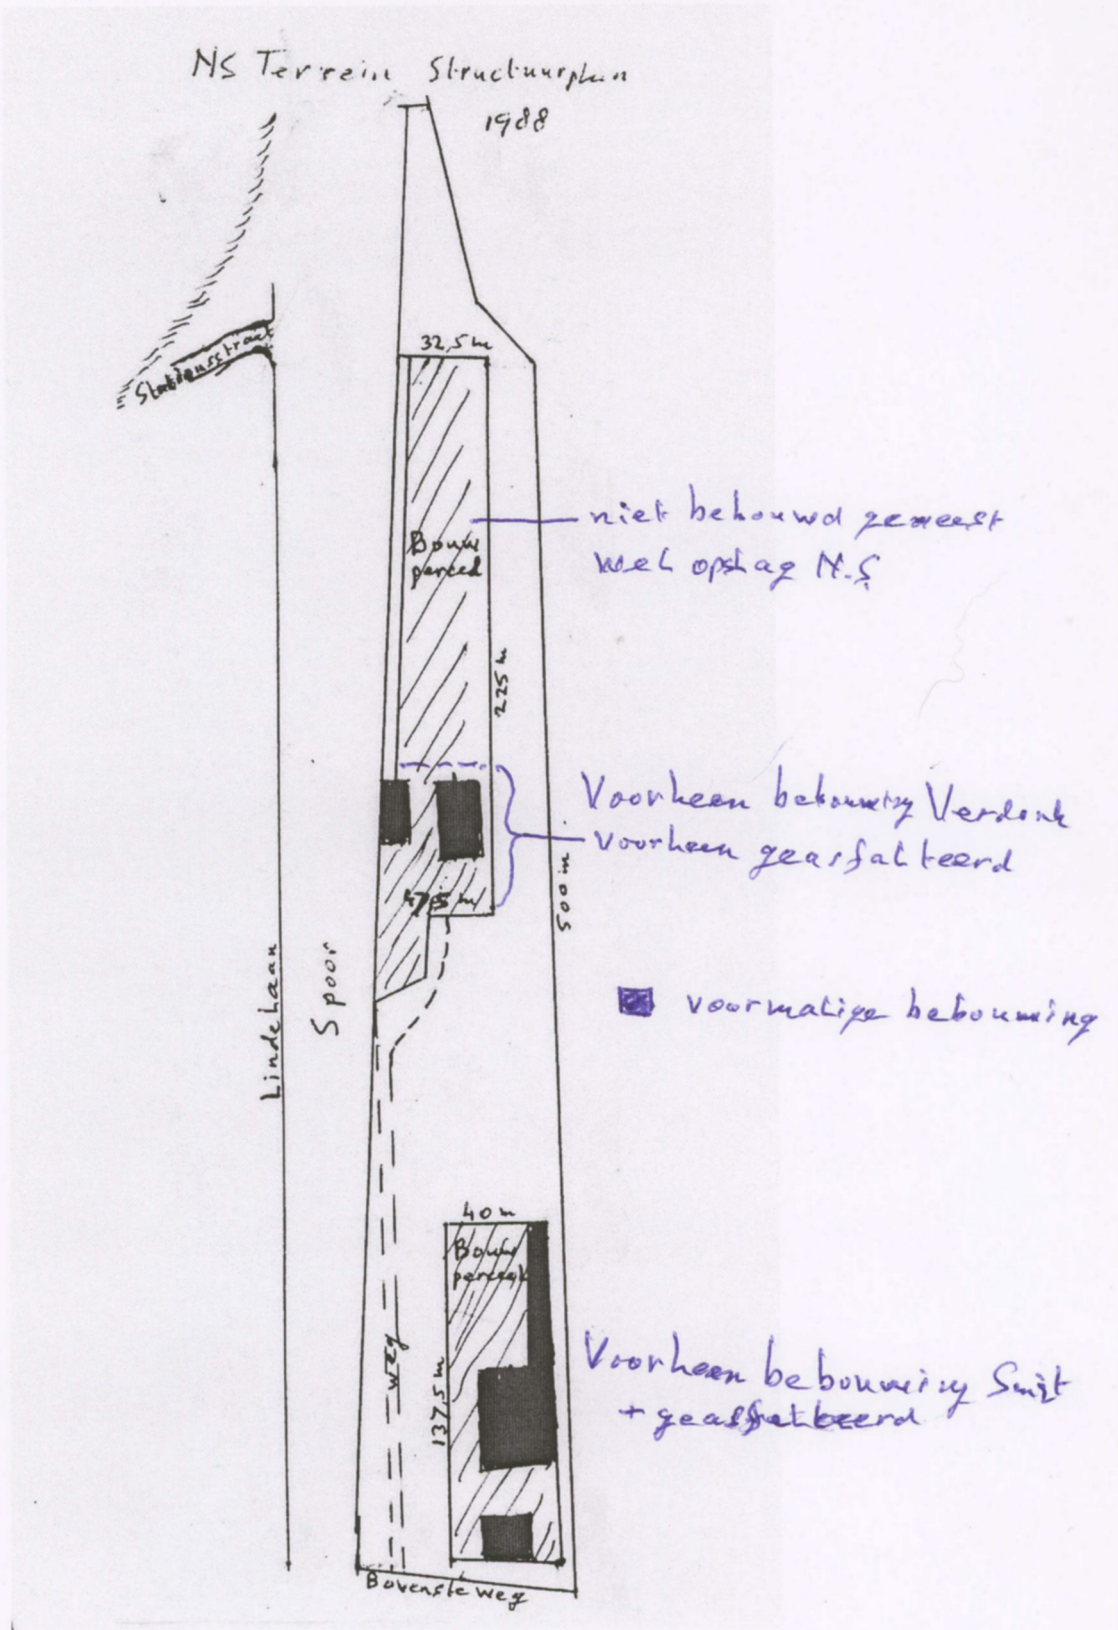 NS Terrein Structuurplan
1988
Stationsstraat
32,5 m
Bouw
perceel
niet bebouwd geweest
wel opslag N.S.
225 m
Voorheen bebouwing Verdonk
voorheen geasfalteerd
47,5 m
500 m
Spoor
Lindelaan
voormalige bebouwing
40 m
Bouw
perceel
137,5 m
weg
Voorheen bebouwing Smit
+ geasfalteerd
Bovenste weg